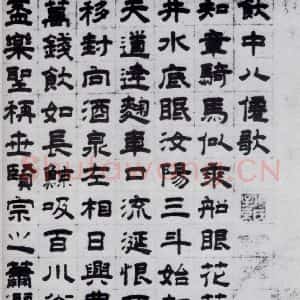 飲中八僊歌
知章騎馬似乘船眼花
井水底眠汝陽三斗始
天道逢麴車口流涎恨不
移封向酒泉左相日興費
萬錢飲如長鯨吸百川銜
盃樂聖稱世賢宗之瀟